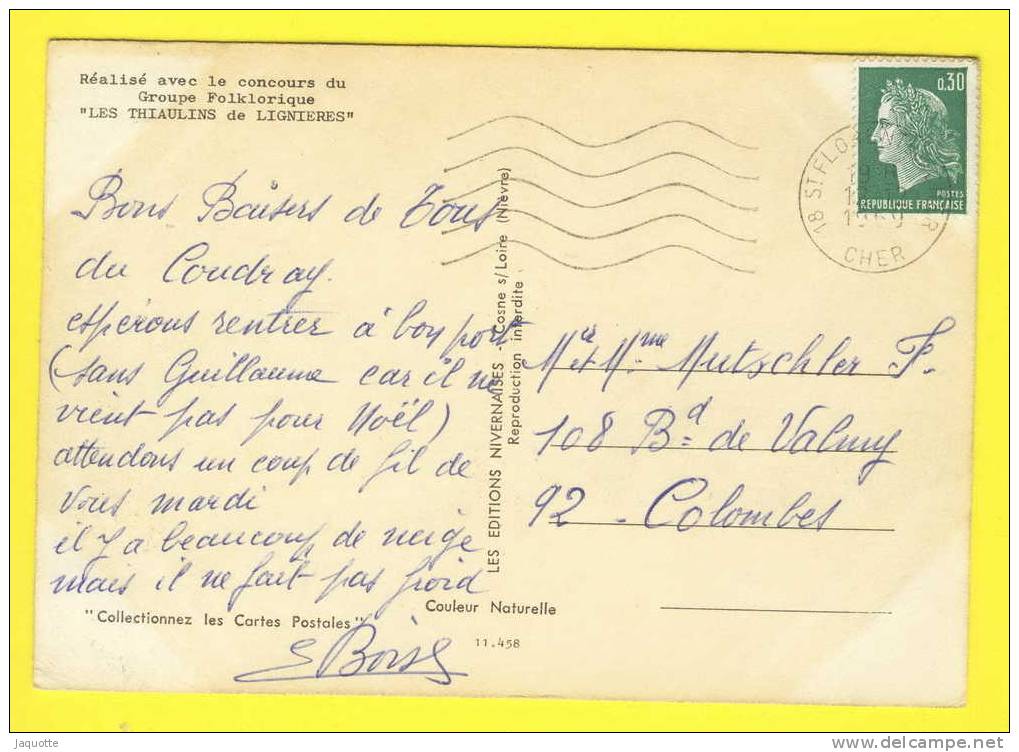 Réalisé avec le concours du
Groupe Folklorique
"LES THIAULINS de LIGNIERES"
Bons Baisers de Tous
du Coudray.
espérons rentrer à bon port
(sans Guillaume car il ne
vient pas pour Noël)
attendons un coup de fil de
vous mardi
il y a beaucoup de neige
mais il ne fait pas froid
"Collectionnez les Cartes Postales"
LES EDITIONS NIVERNAISES - Cosne s/Loire (Nièvre)
Reproduction interdite
Couleur Naturelle
11.458
0.30
POSTES
REPUBLIQUE FRANÇAISE
18 ST FLO
CHER
Mr et Mme Mutschler F.
108 Bd de Valmy
92 - Colombes
Jaquotte
www.delcampe.net